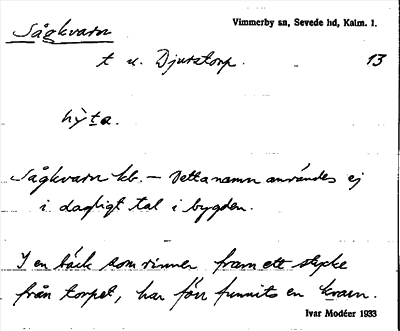 Sågkvarn
Vimmerby sn, Sevede hd, Kalm. l.
t u. Djurstorp. 13
hỳta.
Sågkvarn kb. – Detta namn användes ej
i dagligt tal i bygden.
I en bäck som rinner fram ett stycke
från torpet, har förr funnits en kvarn.
Ivar Modéer 1933